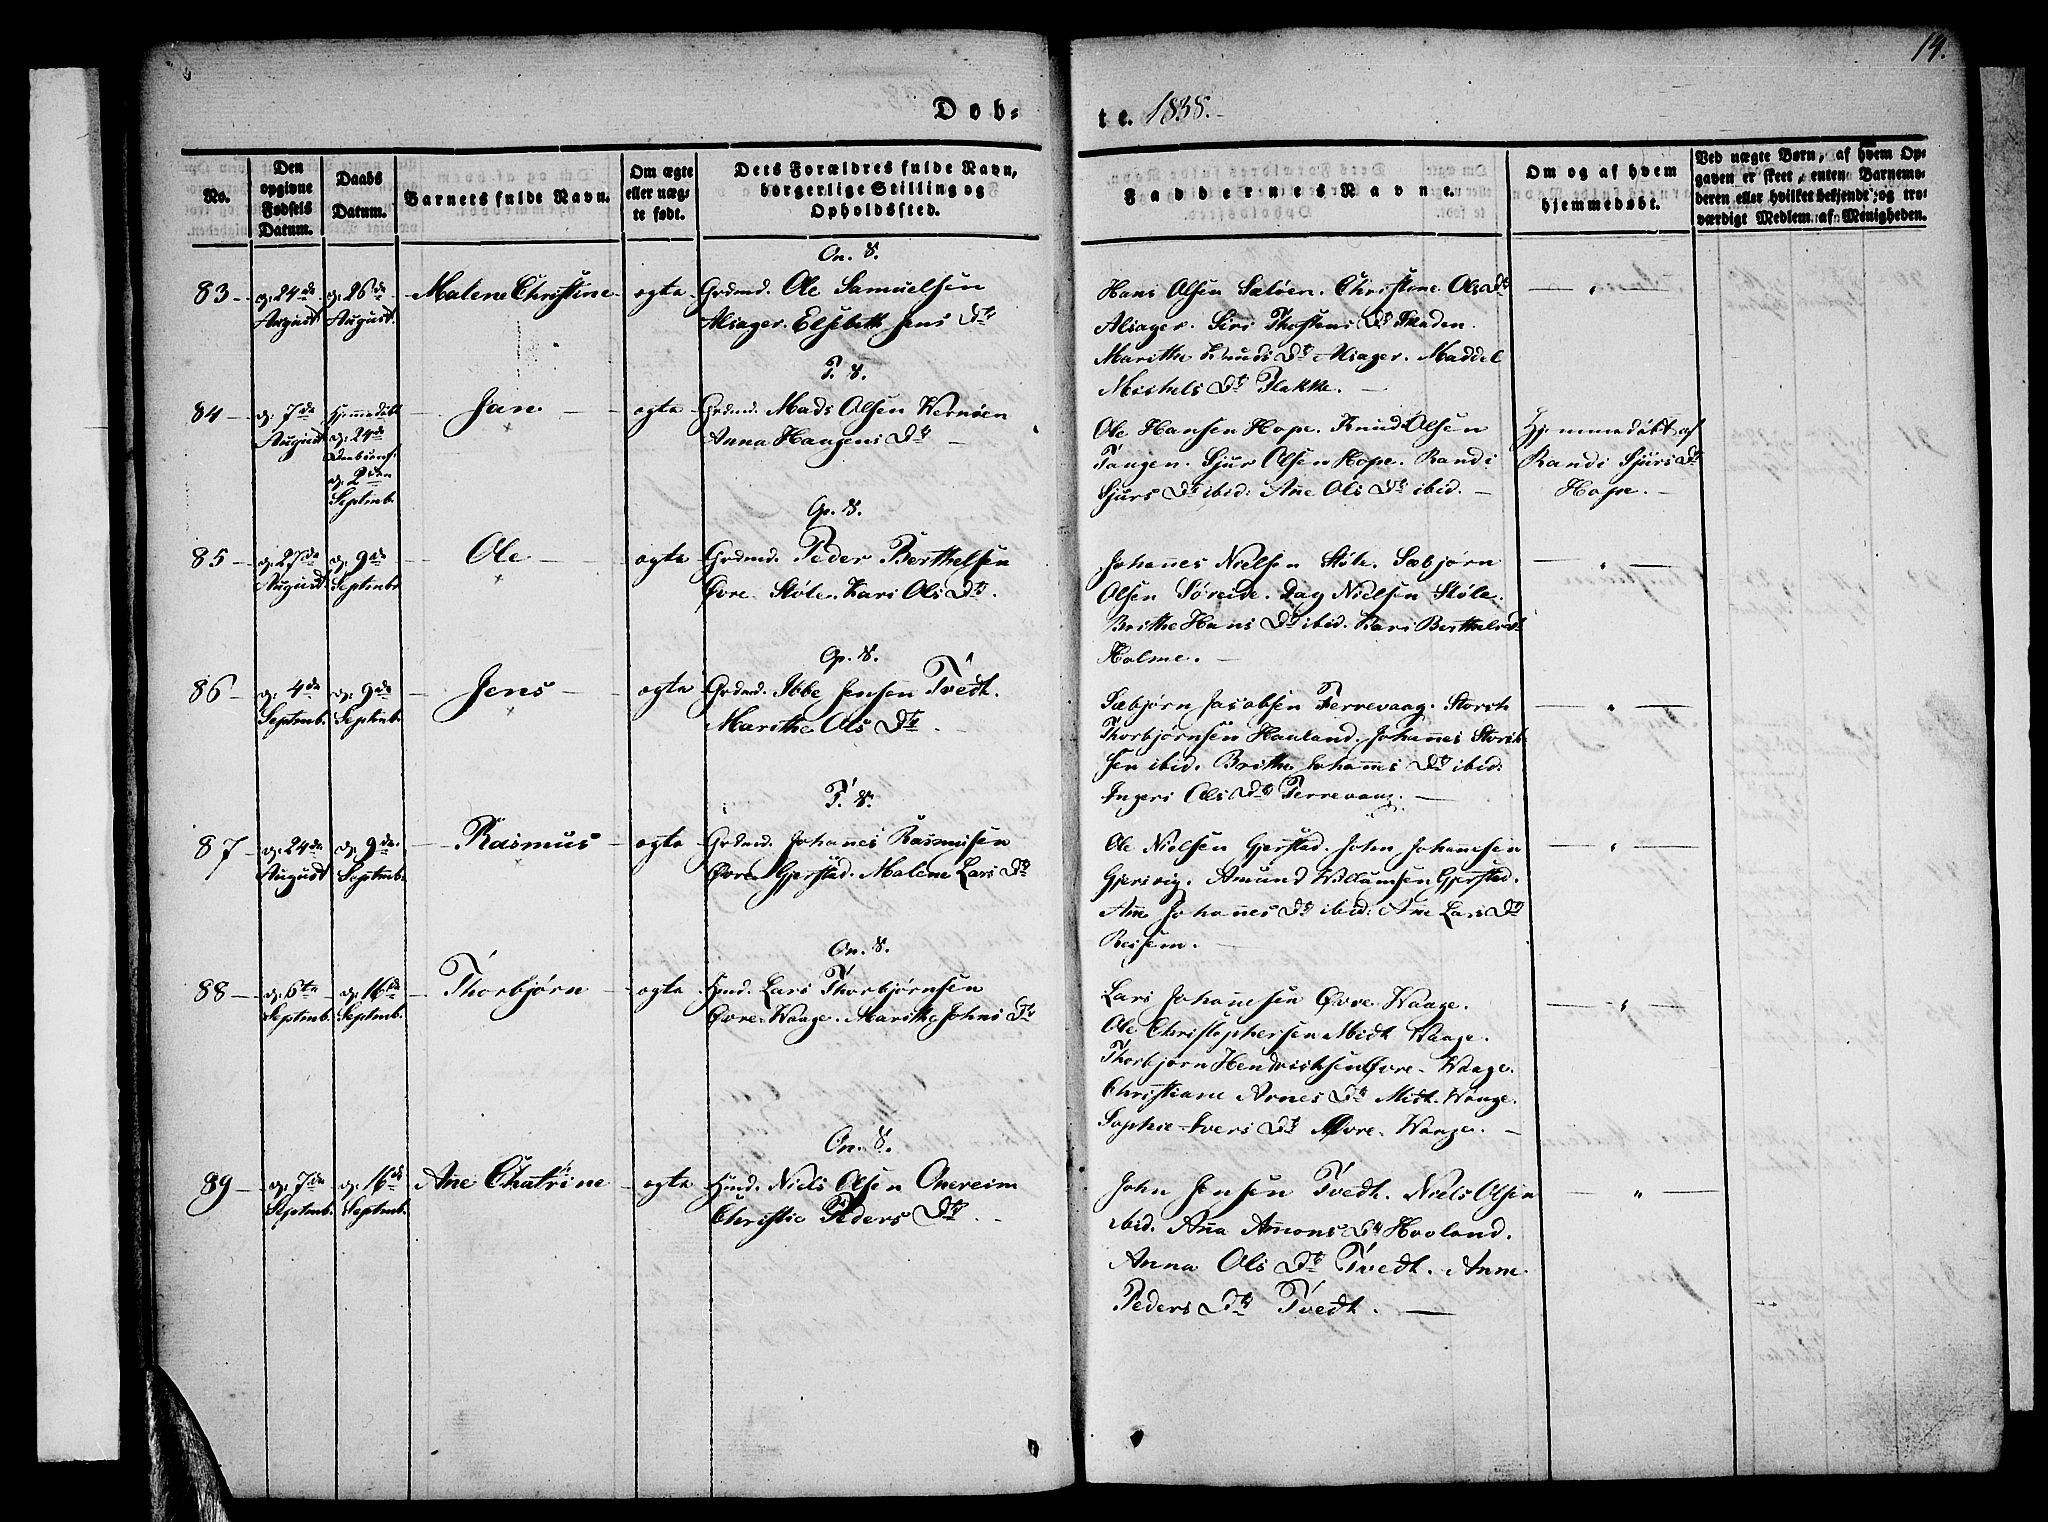 14.
Dob=
te. 1838.
No.
Den opgivne Fødsels Datum.
Daabs Datum.
Barnets fulde Navn.
Om ægte eller uægte født.
Dets Forældres fulde Navn, borgerlige Stilling og Opholdssted.
Faddernes Navne.
Om og af hvem hjemmedøbt.
Ved uægte Børn, af hvem Opgaven er skeet, enten Barnemoderen eller hvilket bekjendt og troværdigt Medlem af Menigheden.
On. S.
83 d: 24de August d: 26de August. Malene Christine ægte Grdmd. Ole Samuelsen
Alsager. Elsebeth Jens Dtr
Hans Olsen Sætøen. Christine Ols Dtr
Alsager. Siri Thostens Dtr Fladen.
Marithe Knuds Dtr Alsager. Maddel
Michels Dtr Flakke.
T. S.
84 d: 7de August Hjemmedøbt d: 24de d: 2den Septmb. Jan ægte Grdmd. Mads Olsen Wernøen
Anna Haagens Dtr
Ole Hansen Hope. Knud Olsen
Tangen. Sjur Olsen Hope. Randi
Sjurs Dtr ibid: Ane Ols Dtr ibid.
Hjemmedøbt af
Randi Sjurs Dtr
Hope.
Op. S.
85 d: 27de August d: 9de Septmbr Ole ægte Grdmd. Peder Berthelsen
Øvre Støle. Kari Ols Dtr.
Johanes Nielsen Støle. Sæbjørn
Olsen Søreide. Dag Nielsen Støle.
Brithe Hans Dtr ibid. Kari Berthels Dtr
Holme.
Op. S.
86 d: 4de Septmb. d: 9de Septmb. Jens ægte Grdmd. Ibbe Jensen Tvedt.
Marithe Ols Dtr
Sæbjørn Jacobsen Ferrevaag. Storch
Thorbjørnsen Hauland. Johannes Storch-
sen ibid. Brithe Johannes Dtr ibid:
Ingeri Ols Dtr Ferrevaag.
T. S.
87 d: 24de August d: 9de Septmb. Rasmus ægte Grdmd. Johanes Rasmusen
Øvre Gjerstad. Malene Lars Dtr
Ole Nielsen Gjerstad. John Johanesen
Gjersvig. Amund Willumsen Gjerstad.
Ane Johanes Dtr ibid: Ane Lars Dtr
Reisem.
On. S.
88 d: 6te Septmb. d: 16de Septmb. Thorbjørn ægte Hmd. Lars Thorbjørnsen
Øvre-Waage. Marithe Johns Dtr
Lars Johanesen Øvre-Waage.
Ole Christophersen Midt Waage.
Thorbjørn Hendrichsen Øvre-Waage.
Christiane Arnes Dtr Midt-Waage.
Sophie Ivers Dtr Øvre-Waage.
On. S.
89 d: 7de Septmb. d: 16de Septmb. Ane Chatrine ægte Hmd. Niels Olsen Onereim
Christie Peders Dtr
John Jensen Tvedt. Niels Olsen
ibid. Ana Amons Dtr Hovland.
Anna Ols Dtr Tvedt. Anne
Peders Dtr Tvedt.